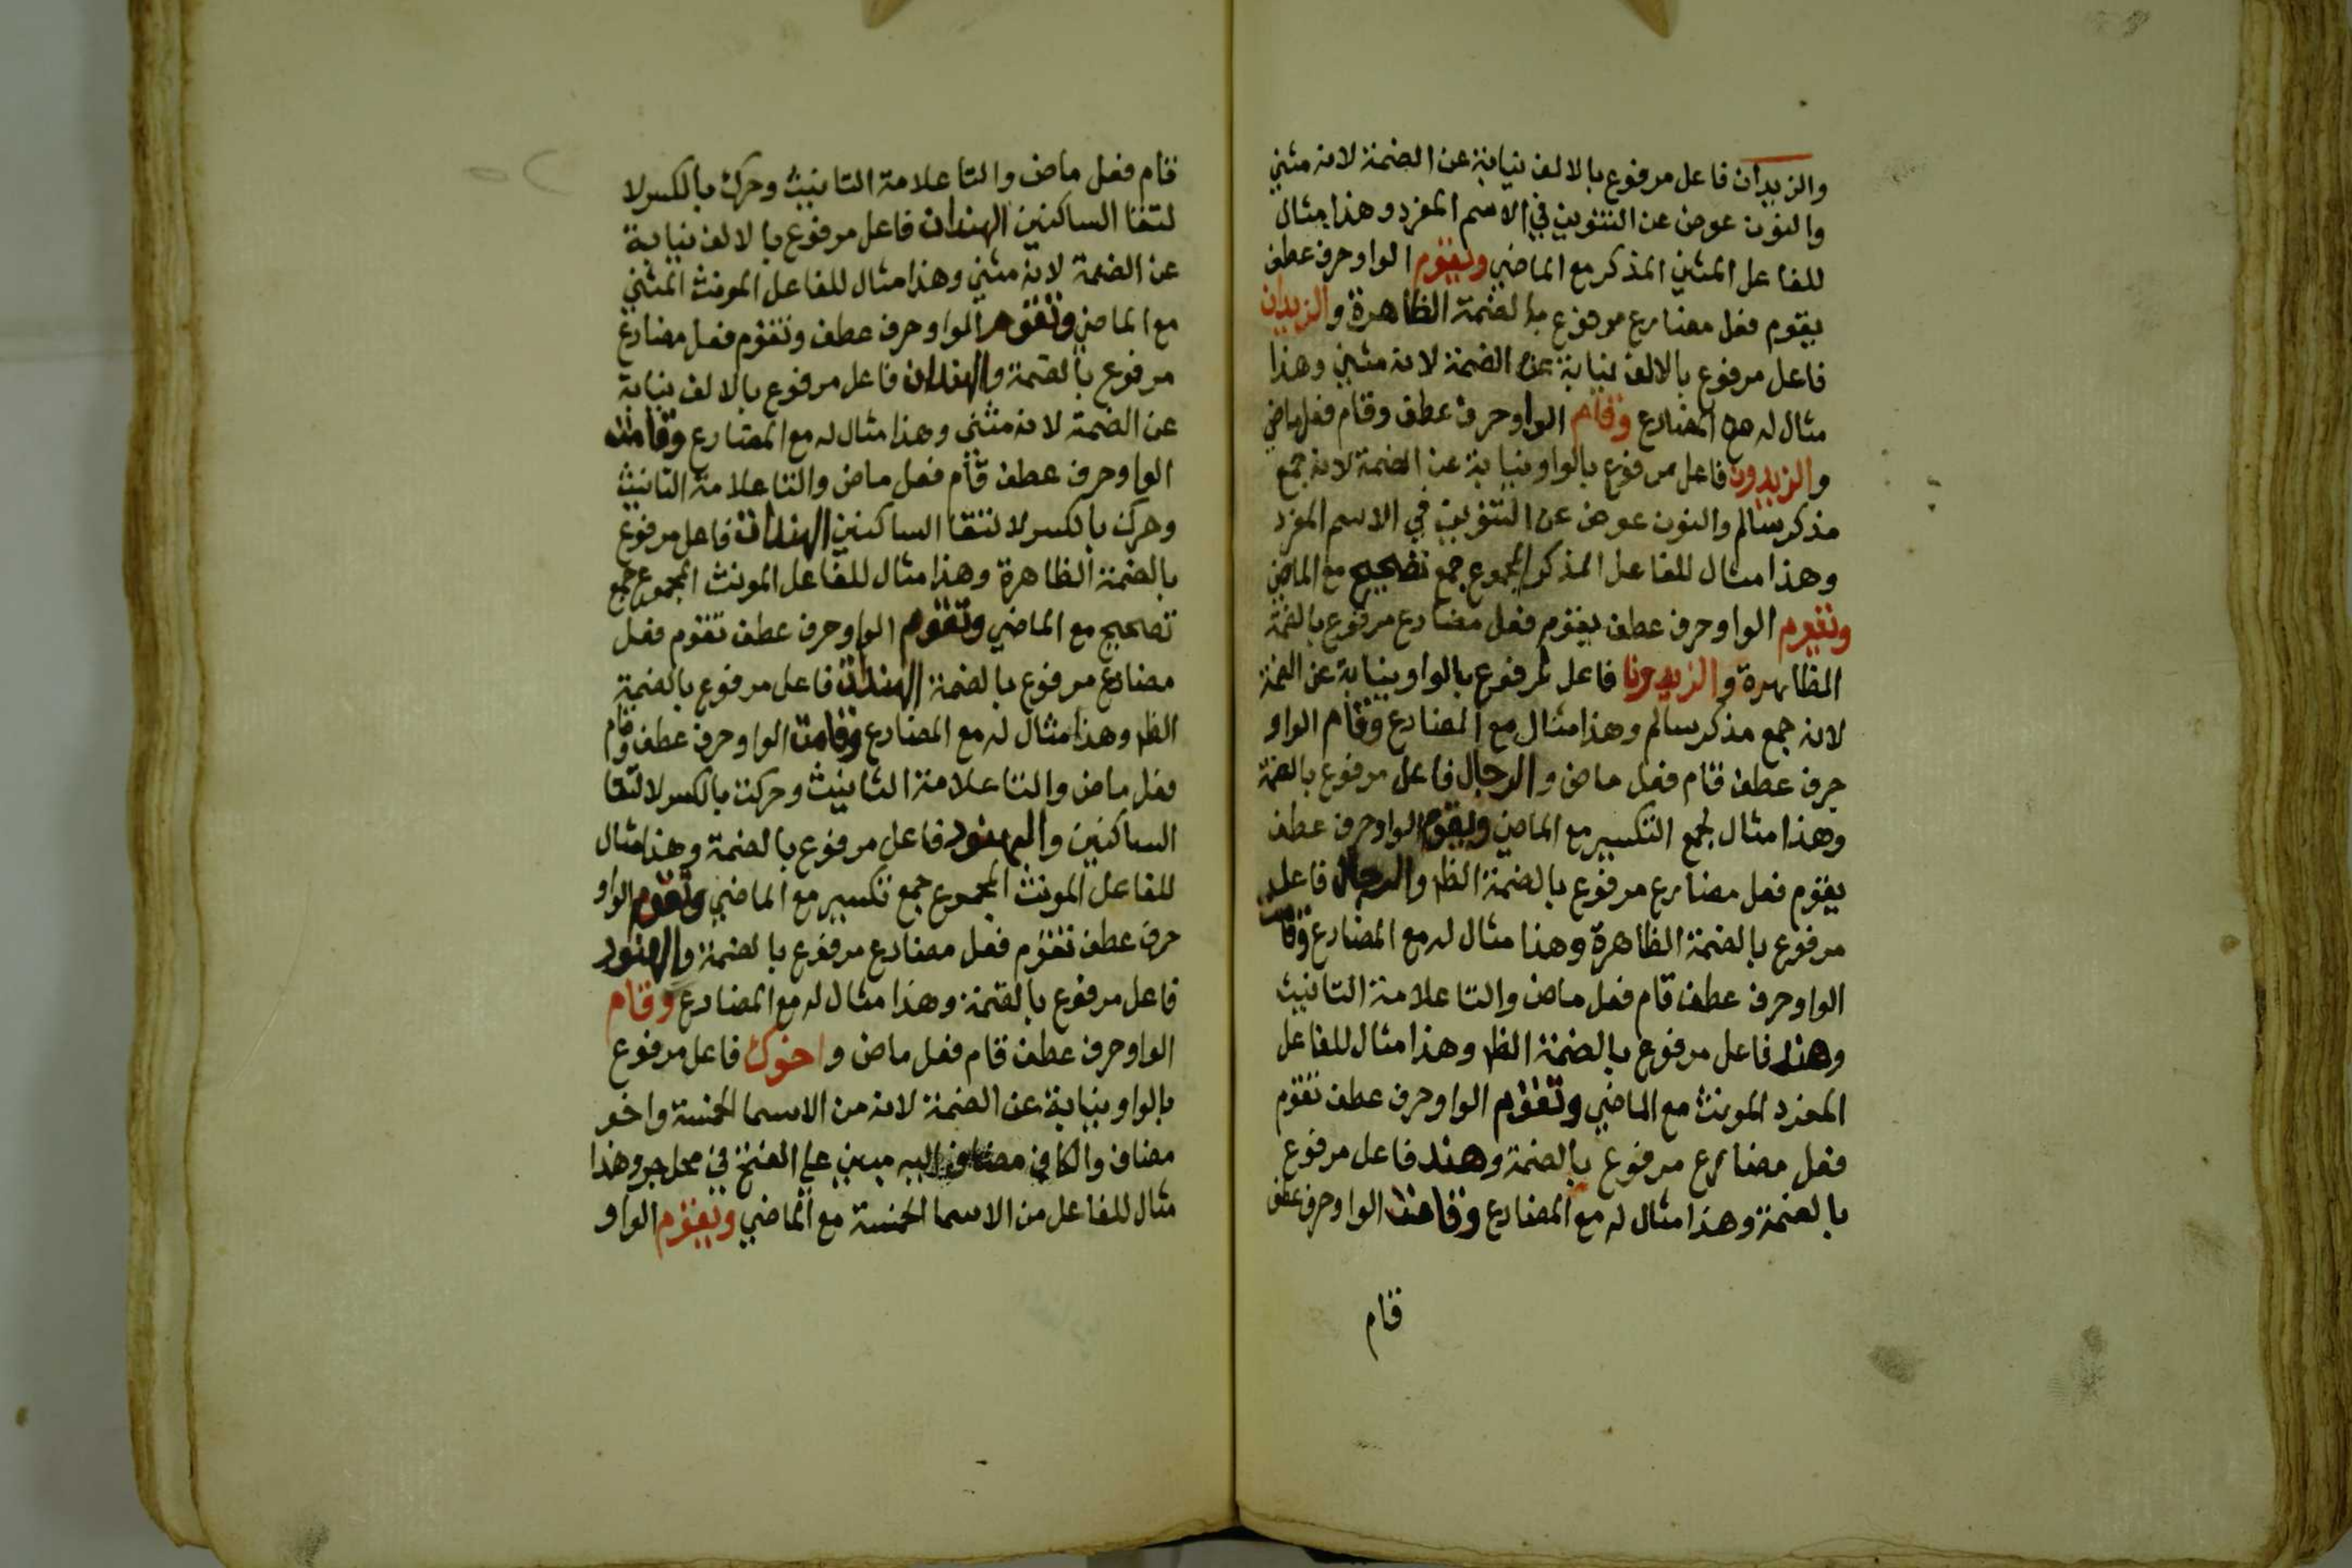 والزيدان فاعل مرفوع بالالف نيابة عن الضمة لانه مثني
والنون عوض عن التنوين في الاسم المفرد وهذا مثال
للفاعل المثني المذكر مع الماضي ويقوم الواو حرف عطف
يقوم فعل مضارع مرفوع بالضمة الظاهرة والزيدان
فاعل مرفوع بالالف نيابة عن الضمة لانه مثني وهذا
مثال له مع المضارع وقام الواو حرف عطف وقام فعل ماض
والزيدون فاعل مرفوع بالواو نيابة عن الضمة لانه جمع
مذكر سالم والنون عوض عن التنوين في الاسم المفرد
وهذا مثال للفاعل المذكر المجموع جمع تصحيح مع الماضي
ويقوم الواو حرف عطف يقوم فعل مضارع مرفوع بالضمة
الظاهرة والزيدونا فاعل مرفوع بالواو نيابة عن الضمة
لانه جمع مذكر سالم وهذا مثال مع المضارع وقام الواو
حرف عطف قام فعل ماض والرجال فاعل مرفوع بالضمة
وهذا مثال لجمع التكسير مع الماضي ويقوم الواو حرف عطف
يقوم فعل مضارع مرفوع بالضمة الظ والرجال فاعل
مرفوع بالضمة الظاهرة وهذا مثال له مع المضارع وقامت
الواو حرف عطف قام فعل ماض والتا علامة التانيث
وهند فاعل مرفوع بالضمة الظ وهذا مثال للفاعل
المفرد المونث مع الماضي وتقوم الواو حرف عطف تقوم
فعل مضارع مرفوع بالضمة وهند فاعل مرفوع
بالضمة وهذا مثال له مع المضارع وقامت الواو حرف عطف
قام
قام فعل ماض والتا علامة التانيث وحرك بالكسر لا
لتقا الساكنين الهندان فاعل مرفوع بالالف نيابة
عن الضمة لانه مثني وهذا مثال للفاعل المونث المثني
مع الماضي وتقوم الواو حرف عطف وتقوم فعل مضارع
مرفوع بالضمة والهندان فاعل مرفوع بالالف نيابة
عن الضمة لانه مثني وهذا مثال له مع المضارع وقامت
الواو حرف عطف قام فعل ماض والتا علامة التانيث
وحرك بالكسر لالتقا الساكنين الهندات فاعل مرفوع
بالضمة الظاهرة وهذا مثال للفاعل المونث المجموع جمع
تصحيح مع الماضي وتقوم الواو حرف عطف تقوم فعل
مضارع مرفوع بالضمة الهندات فاعل مرفوع بالضمة
الظ وهذا مثال له مع المضارع وقامت الواو حرف عطف وقام
فعل ماض والتا علامة التانيث وحركت بالكسر لالتقا
الساكنين والهنود فاعل مرفوع بالضمة وهذا مثال
للفاعل المونث المجموع جمع تكسير مع الماضي وتقوم الواو
حرف عطف تقوم فعل مضارع مرفوع بالضمة والهنود
فاعل مرفوع بالضمة وهذا مثال له مع المضارع وقام
الواو حرف عطف قام فعل ماض واخوك فاعل مرفوع
بالواو نيابة عن الضمة لانه من الاسما الخمسة واخو
مضاف والكاف مضاف اليه مبني علي الفتح في محل جر وهذا
مثال للفاعل من الاسما الخمسة مع الماضي ويقوم الواو